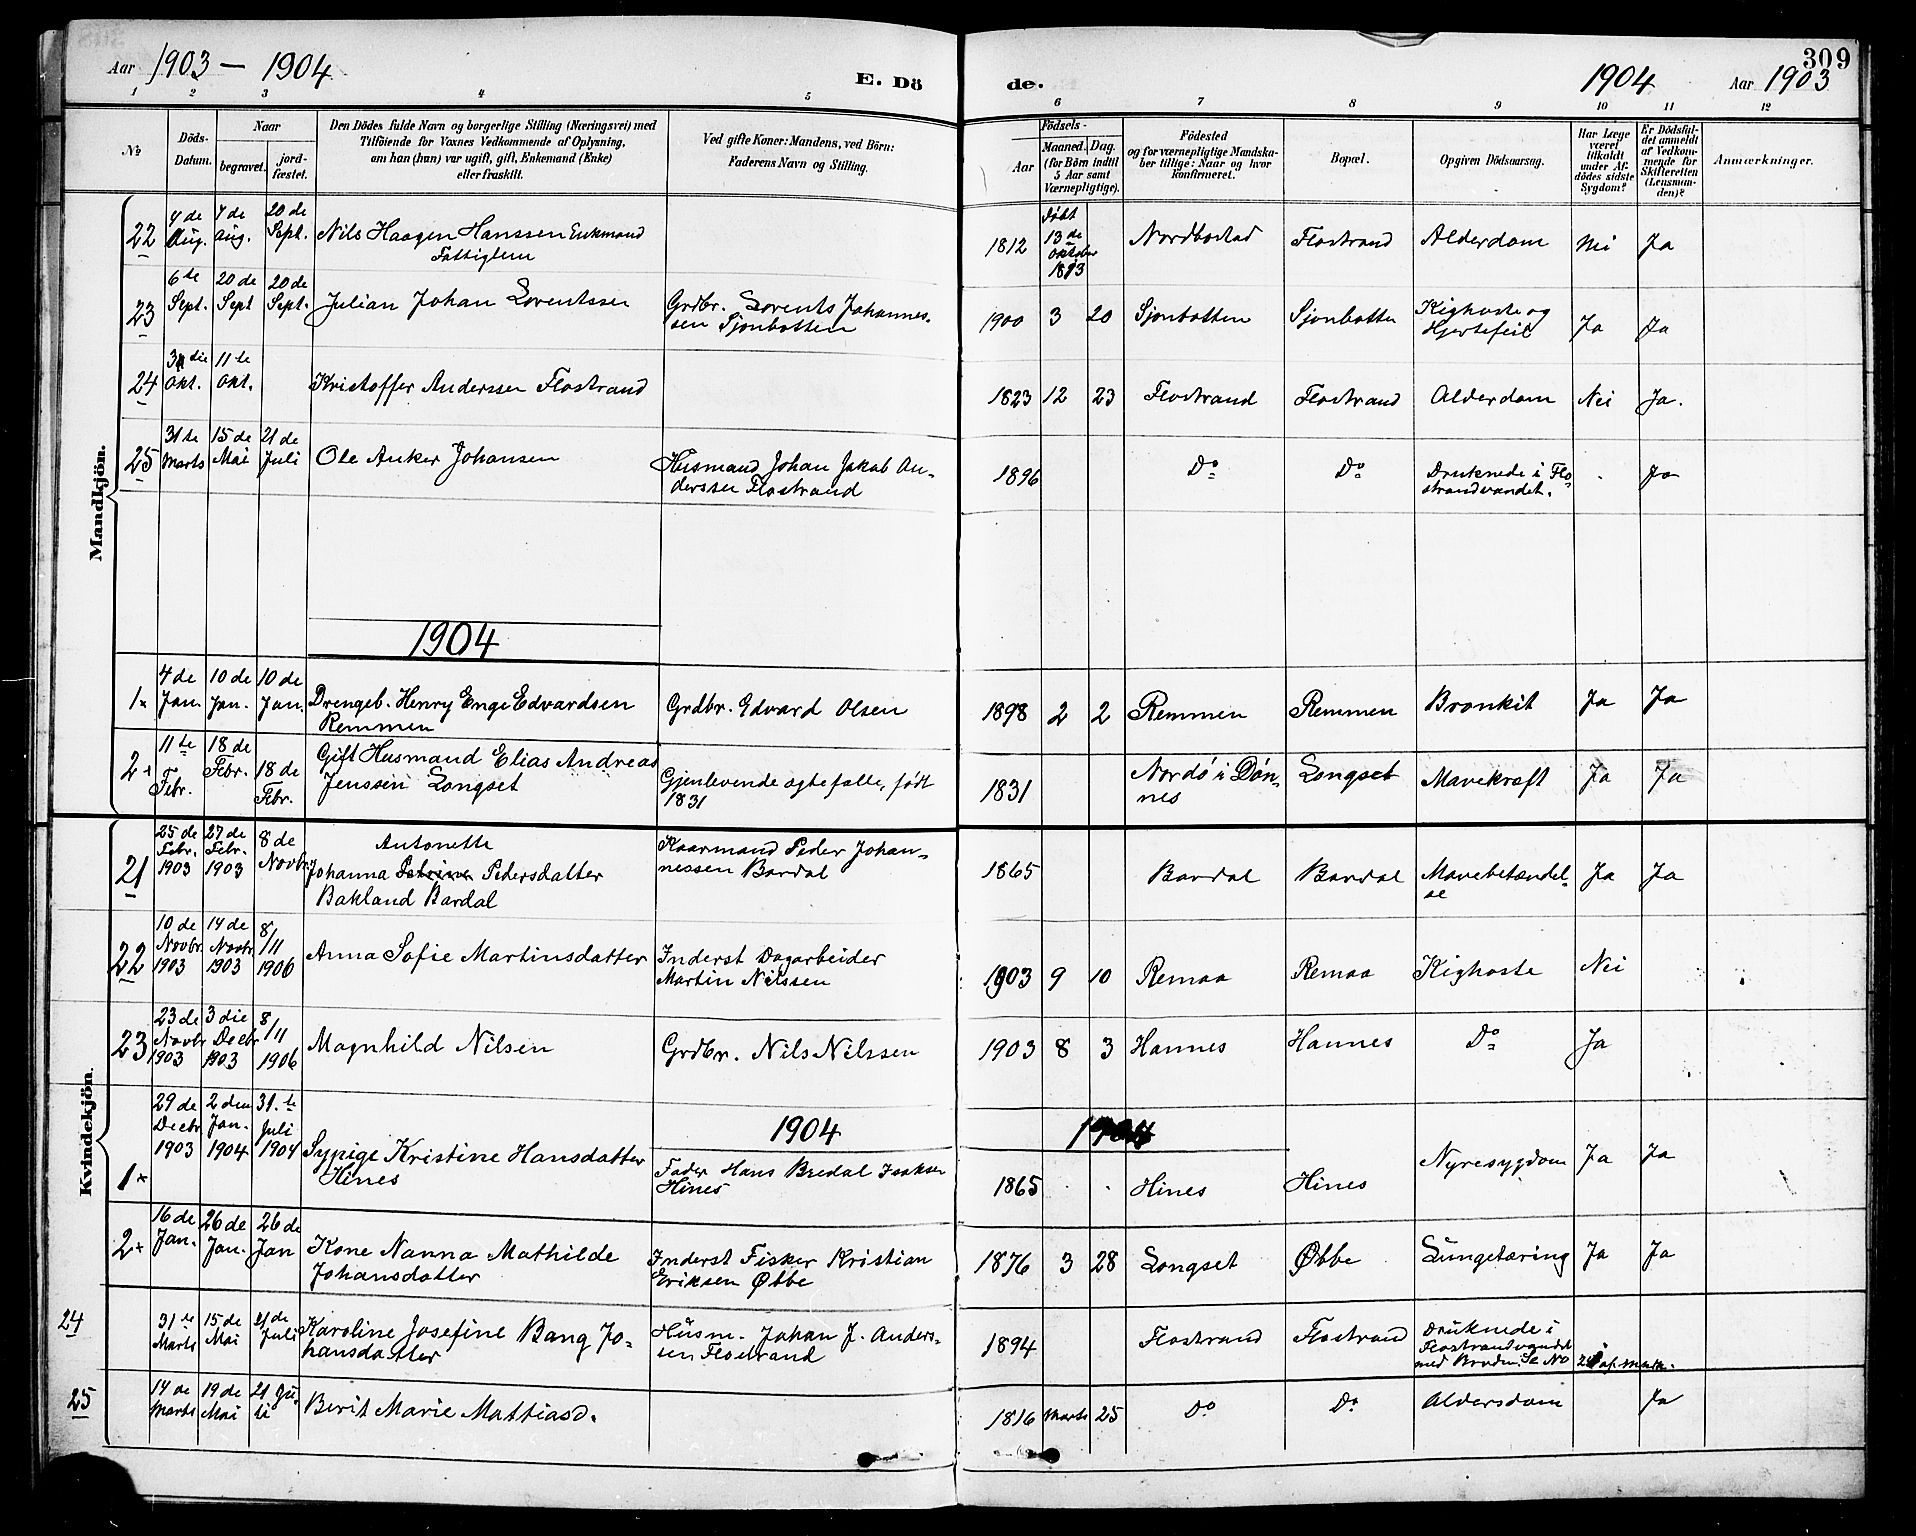 Aar 1903 – 1904
E. Dö
de.
1904 Aar 1903
309
1 2 3 4 5 6 7 8 9 10 11 12
№
Döds-
Datum.
Naar
begravet.
jord-
fæstet.
Den Dödes fulde Navn og borgerlige Stilling (Næringsvei) med
Tilföiende for Voxnes Vedkommende af Oplysning,
om han (hun) var ugift, gift, Enkemand (Enke)
eller fraskilt.
Ved gifte Koner: Mandens, ved Börn:
Faderens Navn og Stilling.
Födsels-
Aar
Maaned. Dag.
(for Börn indtil
5 Aar samt
Værnepligtige).
Födested
og for værnepligtige Mandska-
ber tillige: Naar og hvor
konfirmeret.
Bopæl.
Opgiven Dödsaarsag.
Har Læge
været
tilkaldt
under Af-
dödes sidste
Sygdom?
Er Dödsfal-
det anmeldt
af Vedkom-
mende for
Skifteretten
(Lensman-
den)?
Anmærkninger.
Mandkjön.
22 4 de Aug. 7 de aug. 20 de Sept. Nils Haagen Hanssen Enkmand
Fattiglem
1812 Födt 13 de Oktober 1813 Nordbostad Flostrand Alderdom Nei Ja
23 6 te Sept. 20 de Sept 20 de Sept. Julian Johan Lorentssen Grdbr. Lorents Johannes-
sen Sjonbotten
1900 3 20 Sjonbotten Sjonbotten Kighoste og
Hjertefeil Ja Ja
24 3 die Okt. 11 te Okt. Kristoffer Anderssen Flostrand 1823 12 23 Flostrand Flostrand Alderdom Nei Ja.
25 31 te Marts 15 de Mai 21 de Juli Ole Anker Johansen Husmand Johan Jakob An-
derssen Flostrand
1896 Do Do Druknede i Flo-
strandvandet. Ja
1904
1 4 de Jan. 10 de Jan. 10 de Jan. Drengeb. Henry Enge Edvardsen
Remmen
Grdbr. Edvard Olsen 1898 2 2 Remmen Remmen Bronkit Ja Ja
2 11 te Febr. 18 de Febr. 18 de Febr. Gift Husmand Elias Andreas
Jenssen Longset
Gjenlevende ægtefælle, født
1831
1831 Nordö i Dön-
nes Longset Mavekræft Ja Ja
Kvindekjön.
21 25 de Febr. 1903 27 de Febr. 1903 8 de Novbr Antonette
Johanna Petrine Petersdatter
Bakland Bardal
Kaarmand Peder Johan-
nessen Bardal
1865 Bardal Bardal Mavebetændel-
se Ja Ja
22 10 de Novbr. 1903 14 de Novbr. 1903 8/11 1906 Anna Sofie Martinsdatter Inderst Dagarbeider
Martin Nilssen
1903 9 10 Remaa Remaa Kighoste Nei
23 23 de Novbr 1903 3 die Decbr 1903 8/11 1906 Magnhild Nilsen Grdbr. Nils Nilssen 1903 8 3 Hannes Hannes Do Ja
1904
1904
1 29 de Decbr 1903 2 den Jan. 1904 31. te Juli 1904 Synige Kristine Hansdatter
Hines
Fader Hans Bredal Isaksen
Hines
1865 Hines Hines Nyresygdom Ja Ja
2 16 de Jan. 26 de Jan. 26 de Jan Kone Nanna Mathilde
Johansdatter
Inderst Fisker Kristian
Eriksen Øbbe
1876 3 28 Longset Øbbe Lungetæring Ja Ja
24 31 te Marts 15 de Mai 21 de Juli Karoline Josefine Bang Jo-
hansdatter
Husm. Johan J. Anders-
sen Flostrand
1894 Flostrand Flostrand Druknede i
Flostrandvandet
med Broder. Se No 25 af Mandk.
25 14 de Marts 19 de Mai 21 Juli Berit Marie Mattiasd. 1816 Marts 25 Do Do Aldersdom Ja